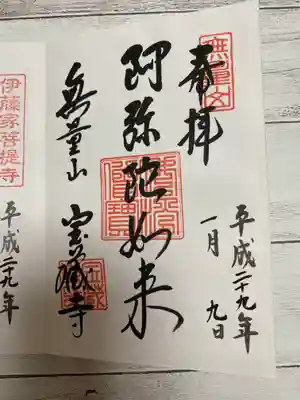 奉拝
平成二十九年
一月 九日
阿弥陀如来
無量山 宝蔵寺
伊藤家菩提寺
平成二十九年